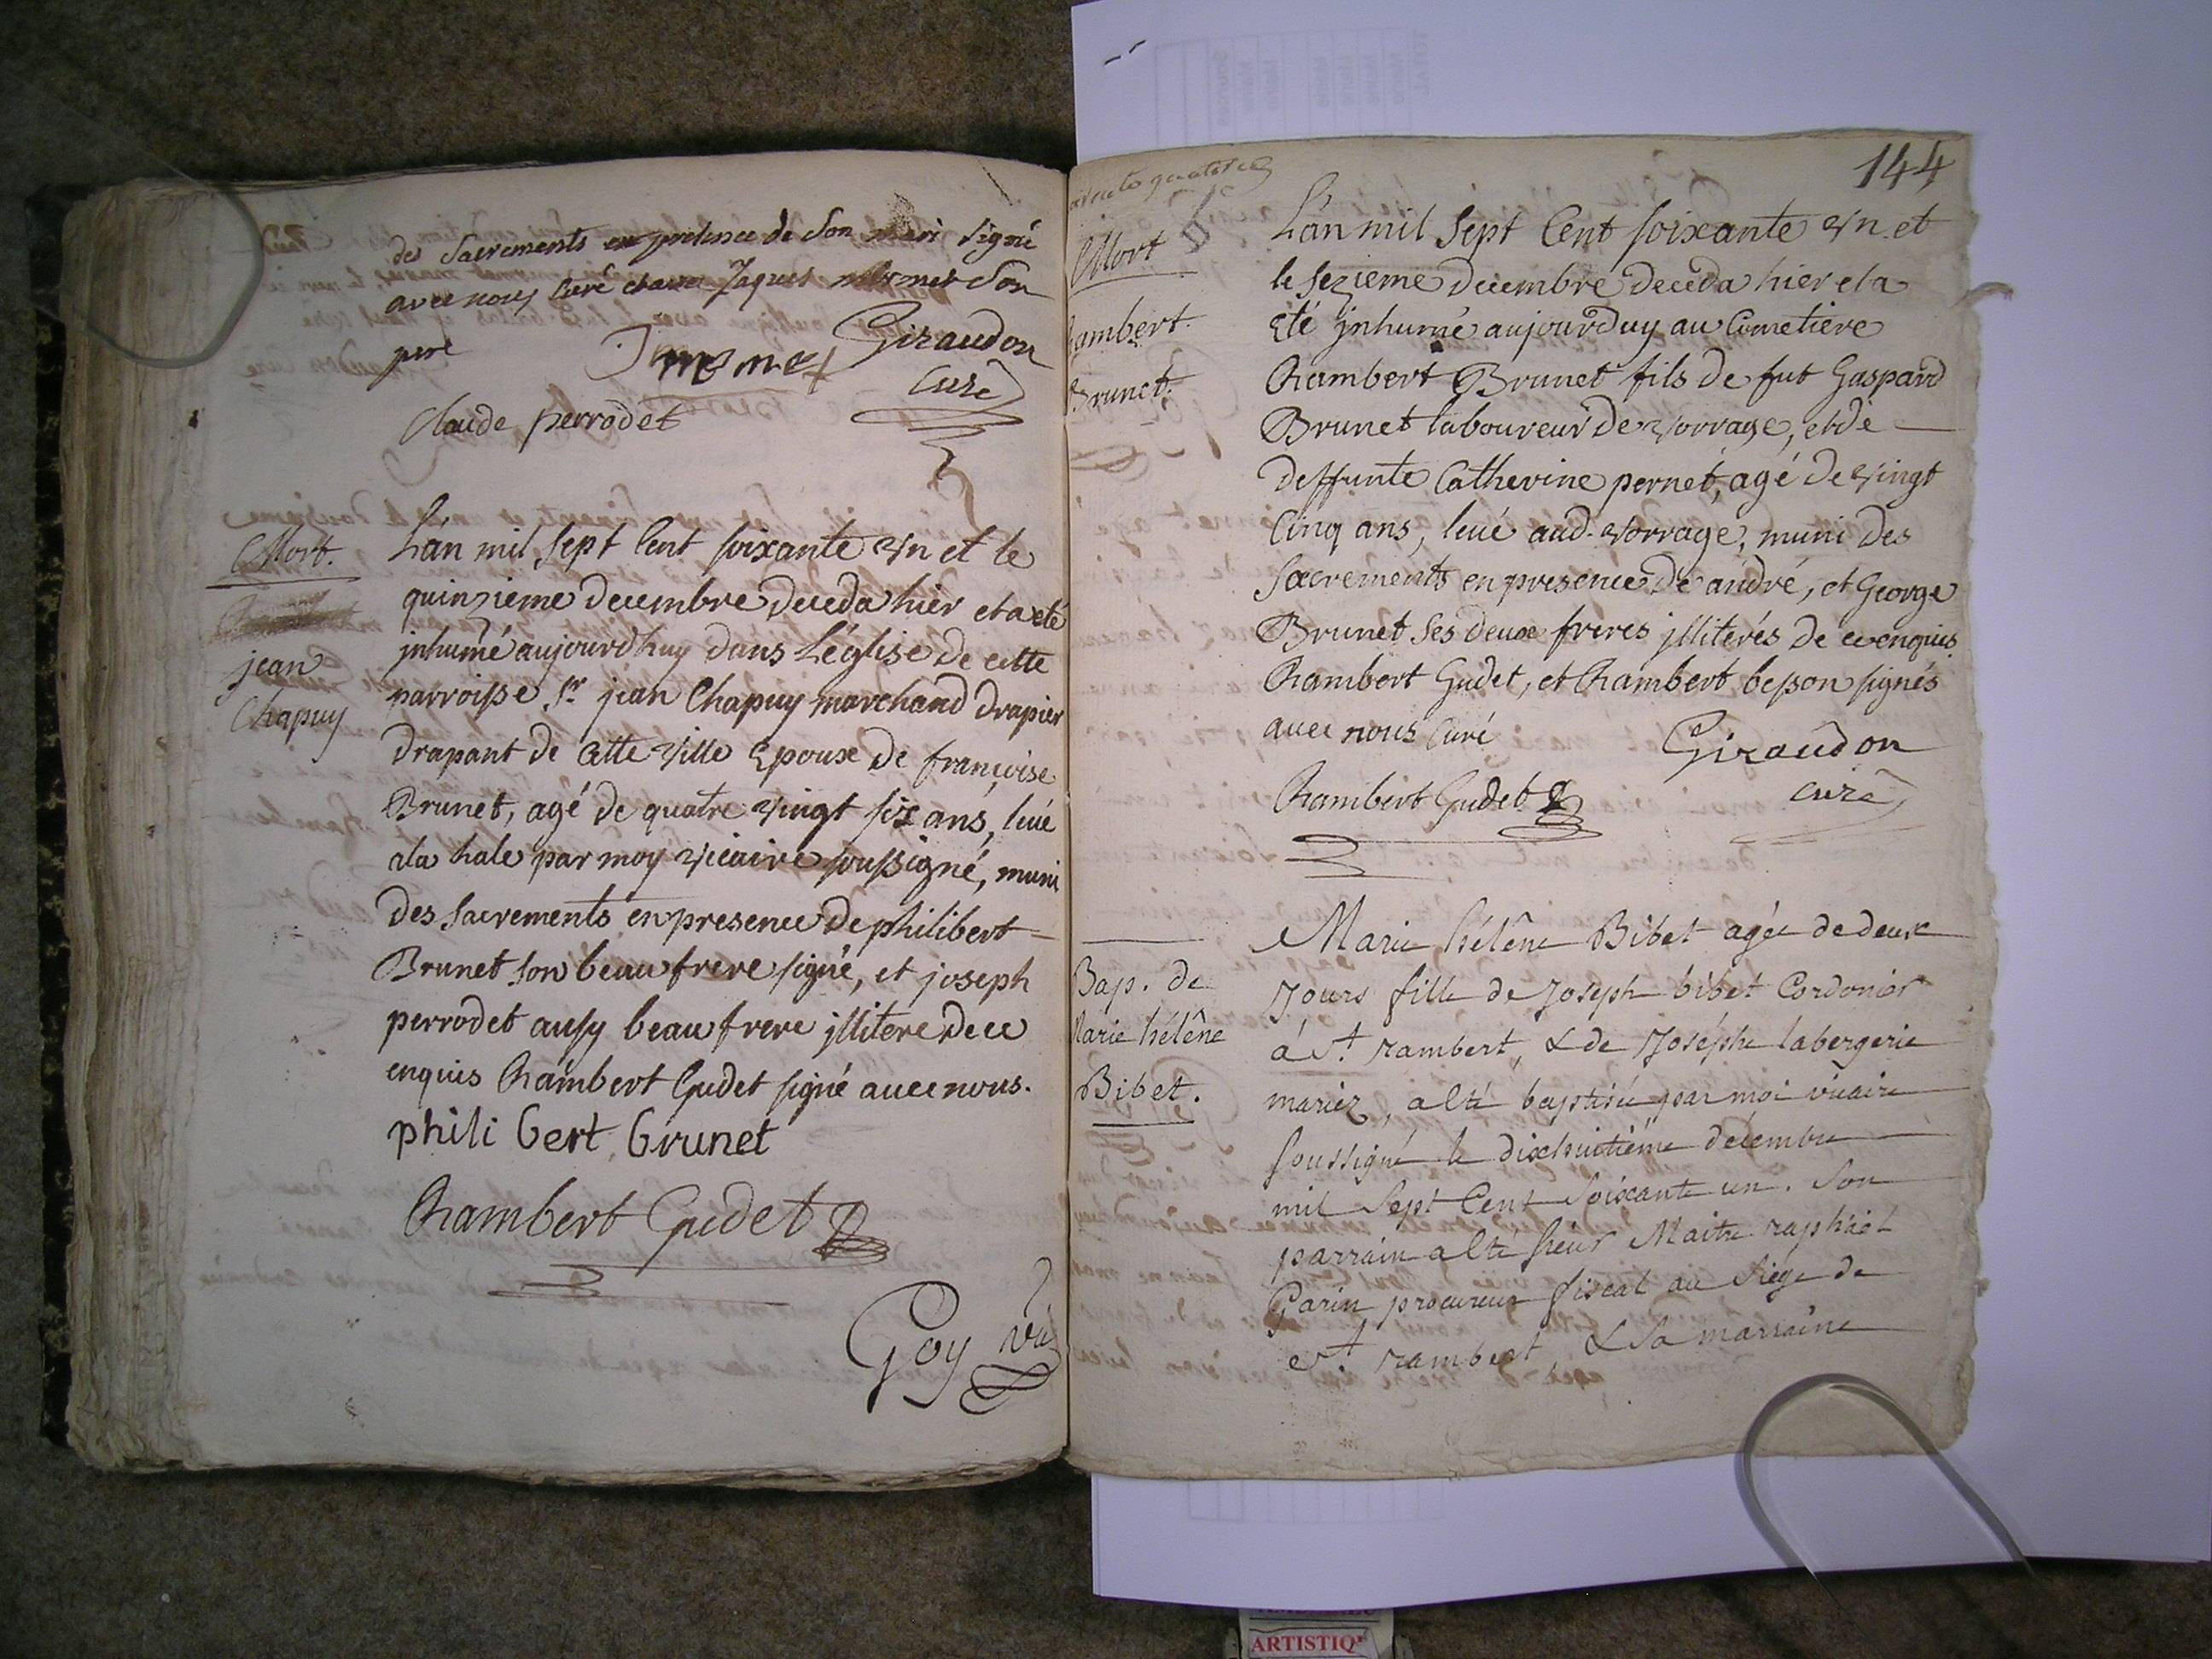 des Sacrements en presence de Son mari Signé
avec nous Curé et avec Jaques mermet Son
pere
J mermet
Giraudon
Curé
Claude perrodet
Mort.
jean
Chapuy
L'an mil Sept Cent soixante vn et le
quinzieme decembre deceda hier et a eté
jnhumé aujourdhuy dans L'église de cette
parroisse Sr jean Chapuy marchand drapier
drapant de Cette ville Epoux de françoise
Brunet, agé de quatre vingt six ans, levé
a la hale par moy vicaire soussigné, muni
des Sacrements en presence de philibert
Brunet son beau frere signé, et joseph
perrodet aussy beau frere jllitere de ce
enquis Rambert Gudet signé avec nous.
phili bert brunet
Rambert Gudet
Goy vic
144
Mort
Rambert.
Brunet.
L'an mil Sept Cent soixante vn et
le sezieme decembre deceda hier et a
Eté jnhumé aujourduy au Cimetiere
Rambert Brunet fils de fut Gaspard
Brunet laboureur de vorrage, et de
deffunte Catherine pernet, agé de vingt
Cinq ans, levé aud. vorrage, muni des
Sacrements en presence de andré, et George
Brunet Ses deux freres jlliterés de ce enquis
Rambert Gudet, et Rambert besson signés
avec nous Curé
Giraudon
curé
Rambert Gudet
Bap. de
Marie hélêne
Bibet.
Marie hélêne Bibet agée de deux
Jours fille de Joseph bibet Cordonier
á St rambert, & de Joséphe labergerie
mariez, a été baptisée par moi vicaire
soussigné le dixhuitiême décembre
mil Sept Cent Soixante un. Son
parrain a été sieur Maitre raphäel
Garin procureur fiscal au siége de
St rambert, & Sa marraine
ARTISTIQ